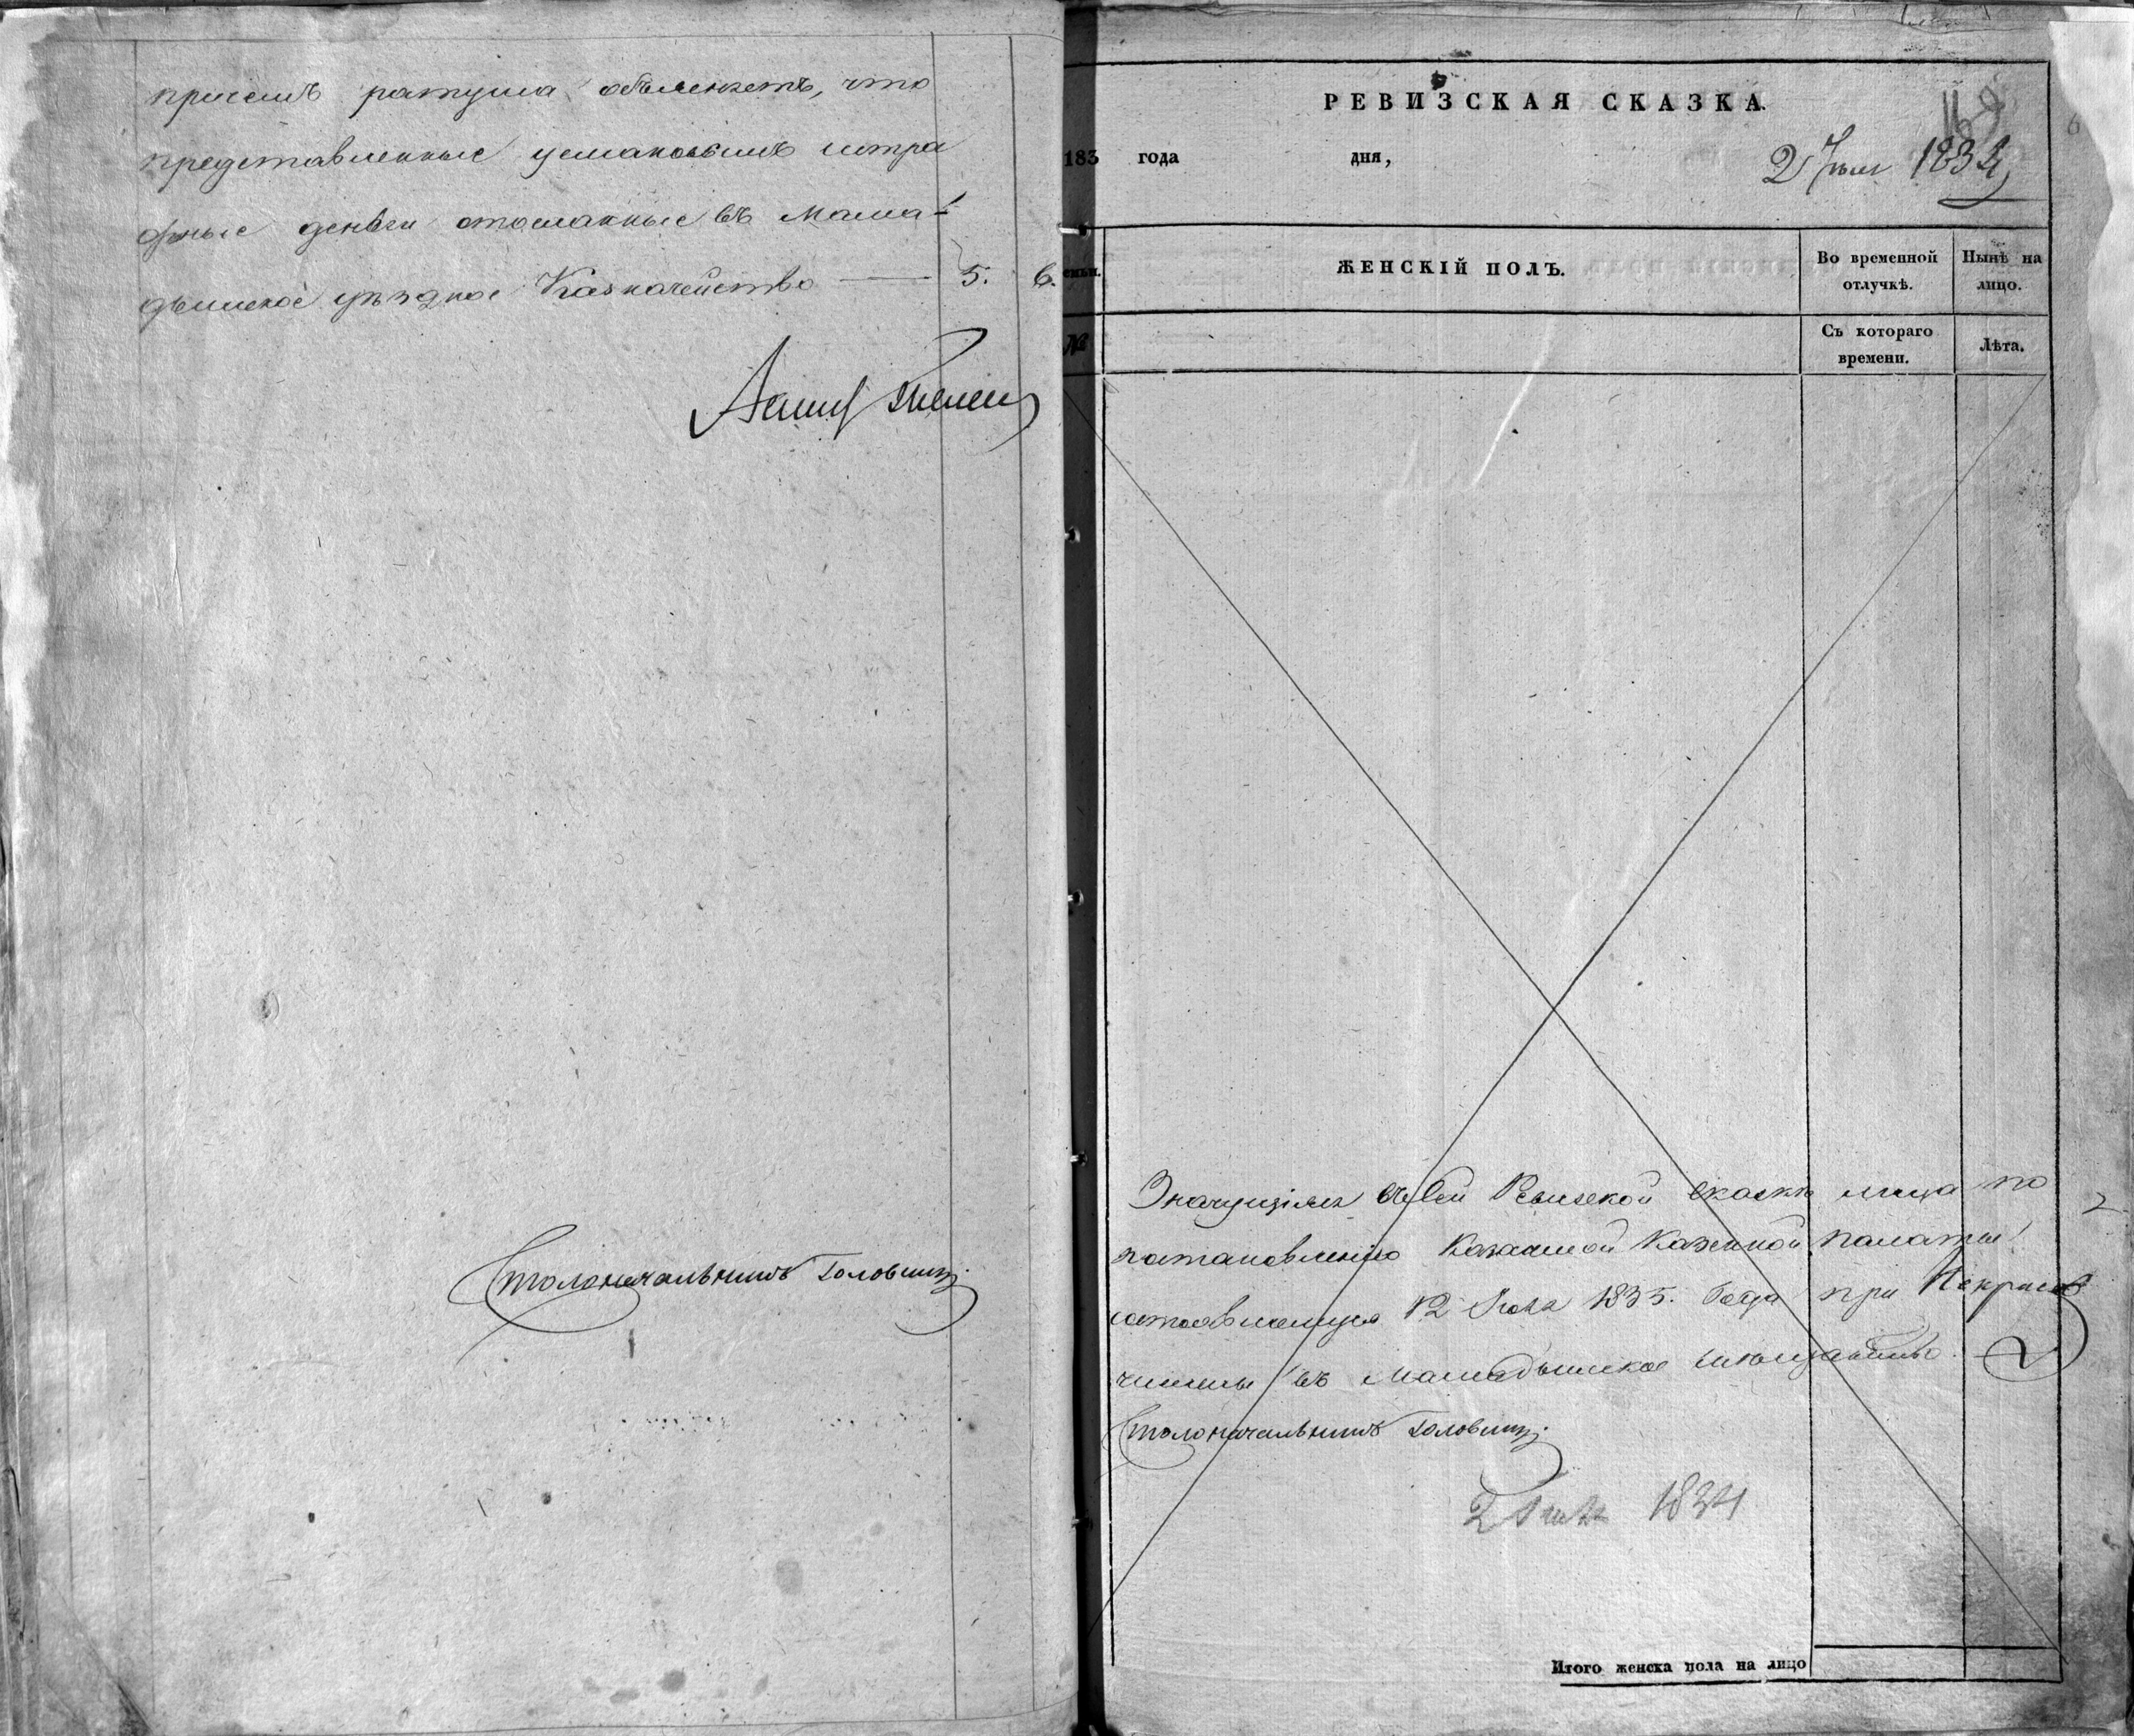 присемъ ратуша объясняетъ, что
представленные усмановымъ штра
фные деньги отосланные въ Мама-
дышское уѣздное Казначейство — 5. 6.
Столоначальникъ Головинъ
РЕВИЗСКАЯ СКАЗКА.
169
183 года дня,
2 Іюля 1834
ЖЕНСКІЙ ПОЛЪ.
Во временной отлучкѣ.
Нынѣ на лицо.
№
Съ котораго времени.
Лѣта.
Значущіяся въ сей Ревизской сказкѣ лица по
постановленію Казанской Казенной палаты
состоявшемуся 12 Іюля 1835. Года при
числены въ Мамадышское мѣщанство.
Столоначальникъ Головинъ
2 Іюля 1834
Итого женска пола на лицо